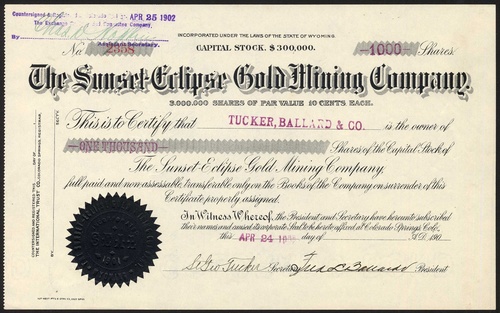 Countersigned APR 25 1902
The Exchange Committee Company,
By
Assistant Secretary.
INCORPORATED UNDER THE LAWS OF THE STATE OF WYOMING.
CAPITAL STOCK, $300,000.
No. 2308 1000 Shares
The Sunset-Eclipse Gold Mining Company.
3,000,000 SHARES OF PAR VALUE 10 CENTS EACH.
This is to Certify that TUCKER, BALLARD & CO. is the owner of
ONE THOUSAND Shares of the Capital Stock of
The Sunset-Eclipse Gold Mining Company,
full paid and non-assessable, transferable only on the Books of the Company on surrender of this
Certificate properly assigned.
In Witness Whereof, the President and Secretary have hereunto subscribed
their names and caused its corporate Seal to be hereto affixed at Colorado Springs, Colo.
this APR 24 day of A.D. 190
St Geo Tucker Secretary Fred L Ballard President
COUNTERSIGNED AND REGISTERED THIS DAY OF
THE INTERNATIONAL TRUST CO. COLORADO SPRINGS, REGISTRAR.
SEC'TY.